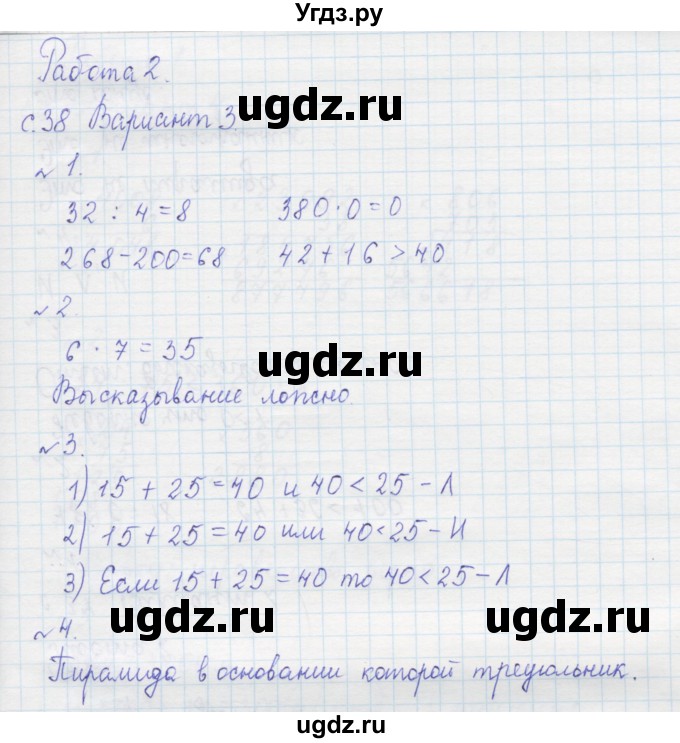 Угдз.ру
Работа 2.
с.38 Вариант 3
№ 1.
32 : 4 = 8 380 · 0 = 0
268 - 200 = 68 42 + 16 > 40
№ 2
6 · 7 = 35
Высказывание ложно.
№ 3.
1) 15 + 25 = 40 и 40 < 25 - Л
2) 15 + 25 = 40 или 40 < 25 - И
3) Если 15 + 25 = 40 то 40 < 25 - Л
№ 4.
Пирамида в основании которой треугольник.
ugdz.ru
ugdz.ru
ugdz.ru
ugdz.ru
ugdz.ru
ugdz.ru
ugdz.ru
ugdz.ru